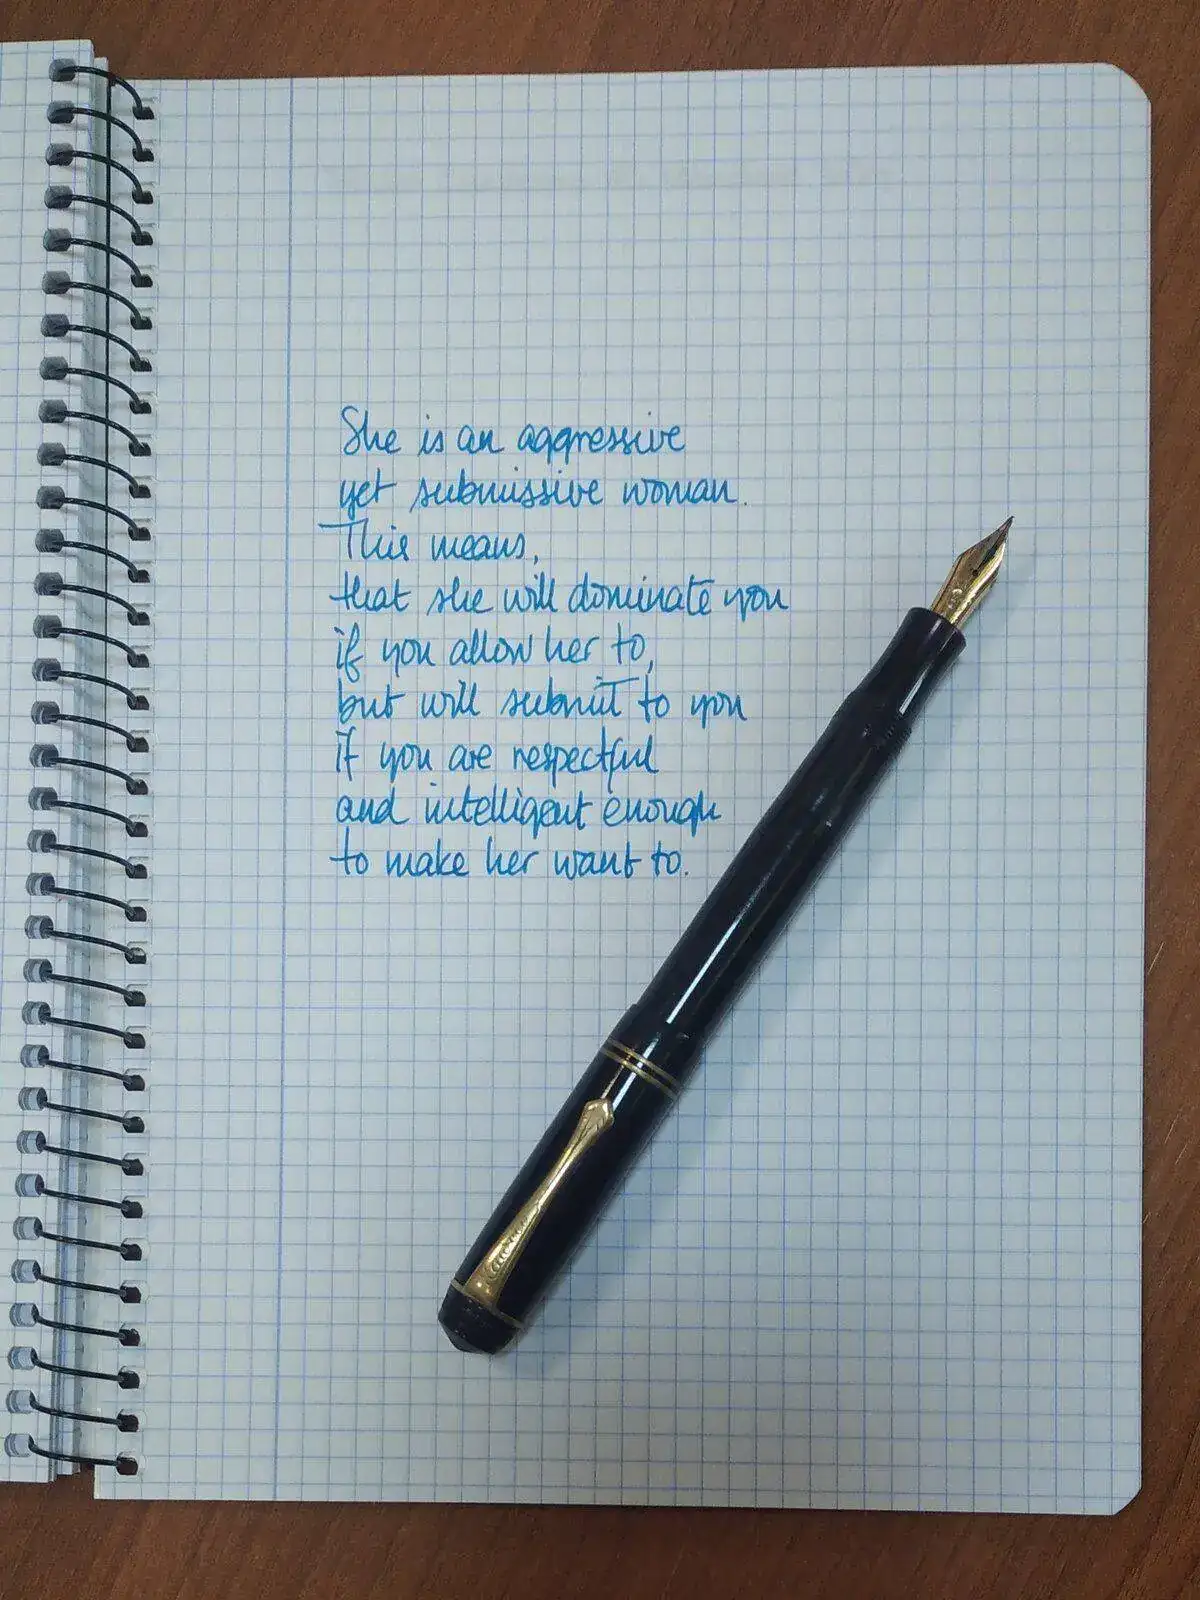 She is an aggressive
yet submissive woman.
This means,
that she will dominate you
if you allow her to,
but will submit to you
if you are respectful
and intelligent enough
to make her want to.